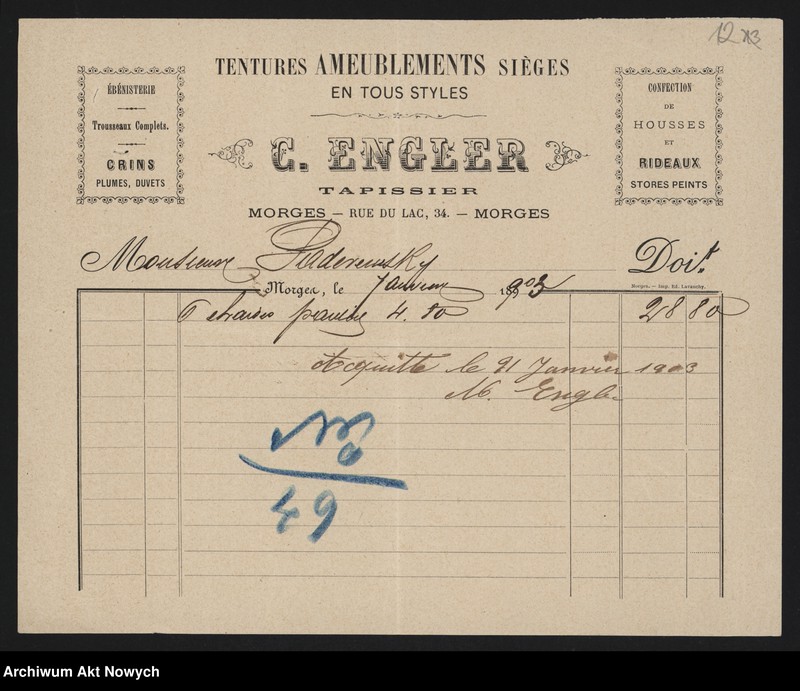 12
TENTURES AMEUBLEMENTS SIÈGES
EN TOUS STYLES
ÉBÉNISTERIE
Trousseaux Complets.
CRINS
PLUMES, DUVETS
CONFECTION
DE
HOUSSES
ET
RIDEAUX
STORES PEINTS
C. ENGLER
TAPISSIER
MORGES — RUE DU LAC, 34. — MORGES
Monsieur Paderewsky Doit
Morges, le Janvier 1903
Morges. — Imp. Ed. Lavanchy.
6 chaises 4.80 28 80
Acquitté le 21 Janvier 1903
M. Engler
No
49
Archiwum Akt Nowych